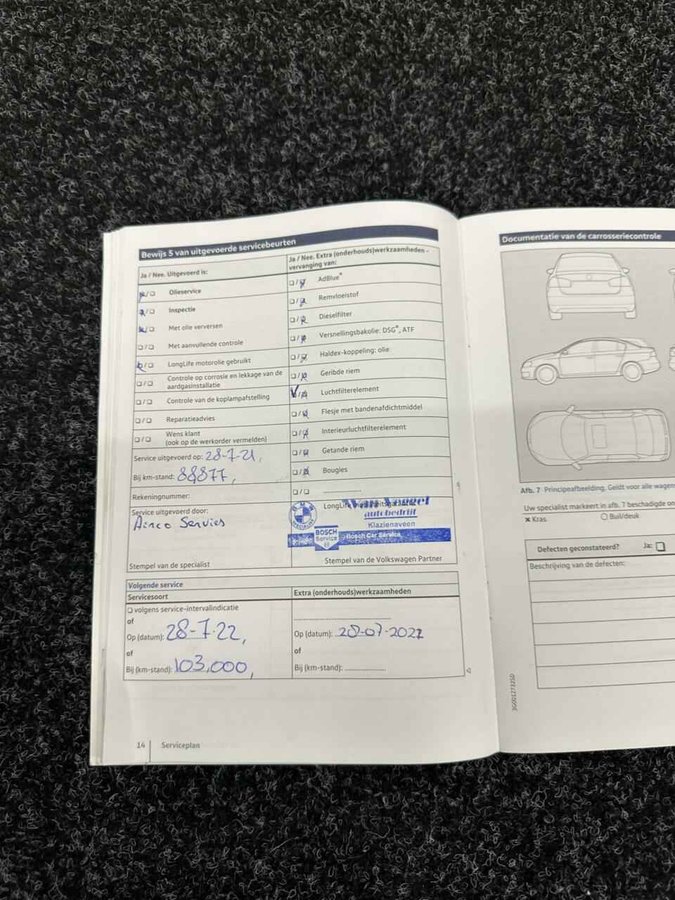 Bewijs 5 van uitgevoerde servicebeurten
Ja / Nee. Uitgevoerd is:
Olieservice
Inspectie
Met olie verversen
Met aanvullende controle
LongLife motorolie gebruikt
Controle op corrosie en lekkage van de
aardgasinstallatie
Controle van de koplampafstelling
Reparatieadvies
Wens klant
(ook op de werkorder vermelden)
Service uitgevoerd op: 28-7-21,
Bij km-stand: 88877,
Rekeningnummer:
Service uitgevoerd door:
Stempel van de specialist
Ja / Nee. Extra (onderhouds)werkzaamheden –
vervanging van:
AdBlue®
Remvloeistof
Dieselfilter
Versnellingsbakolie: DSG®, ATF
Haldex-koppeling: olie
Geribde riem
Luchtfilterelement
Flesje met bandenafdichtmiddel
Interieurluchtfilterelement
Getande riem
Bougies
LongLife
autobedrijf
Klazienaveen
BOSCH
Service
Bosch Car Service
Stempel van de Volkswagen Partner
Volgende service
Servicesoort
volgens service-intervalindicatie
of
Op (datum): 28-7-22,
of
Bij (km-stand): 103.000,
Extra (onderhouds)werkzaamheden
Op (datum): 28-07-2021
of
Bij (km-stand):
14 Serviceplan
Documentatie van de carrosseriecontrole
Afb. 7 Principeafbeelding. Geldt voor alle wagen
Uw specialist markeert in afb. 7 beschadigde on
x Kras Buil/deuk
Defecten geconstateerd? Ja:
Beschrijving van de defecten: